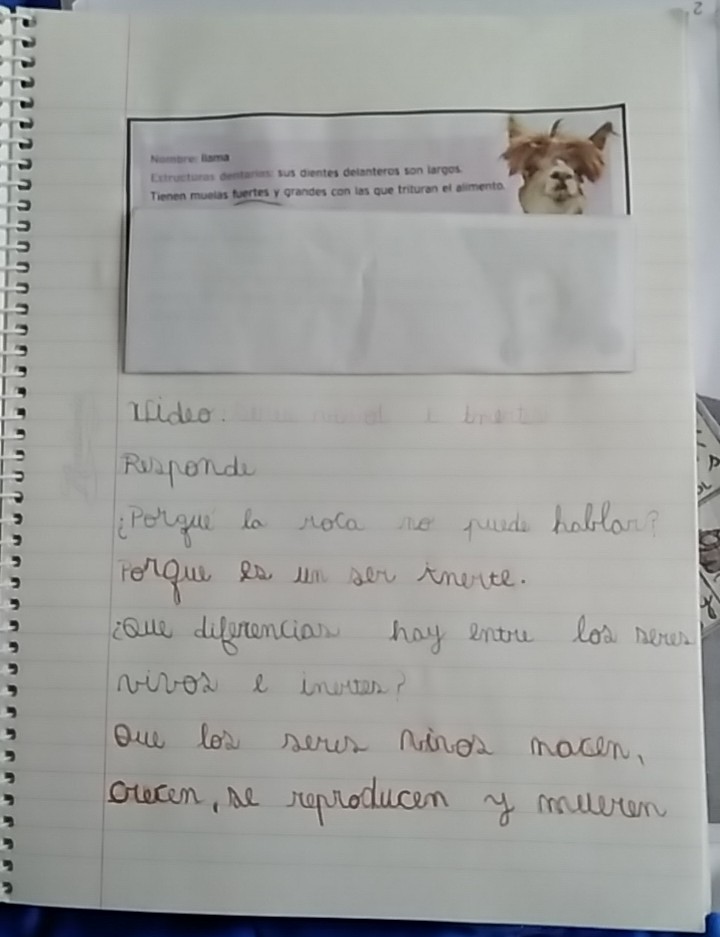 2
Nombre: llama
Estructuras dentarias: sus dientes delanteros son largos.
Tienen muelas fuertes y grandes con las que trituran el alimento.
Video:
Responde
¿Porque la roca no puede hablar?
Porque es un ser inerte.
¿Que diferencias hay entre los seres
vivos e inertes?
Que los seres vivos nacen,
crecen, se reproducen y mueren